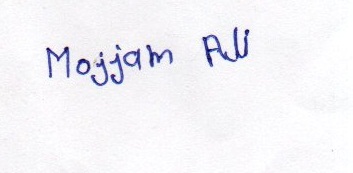 Mojjam Ali